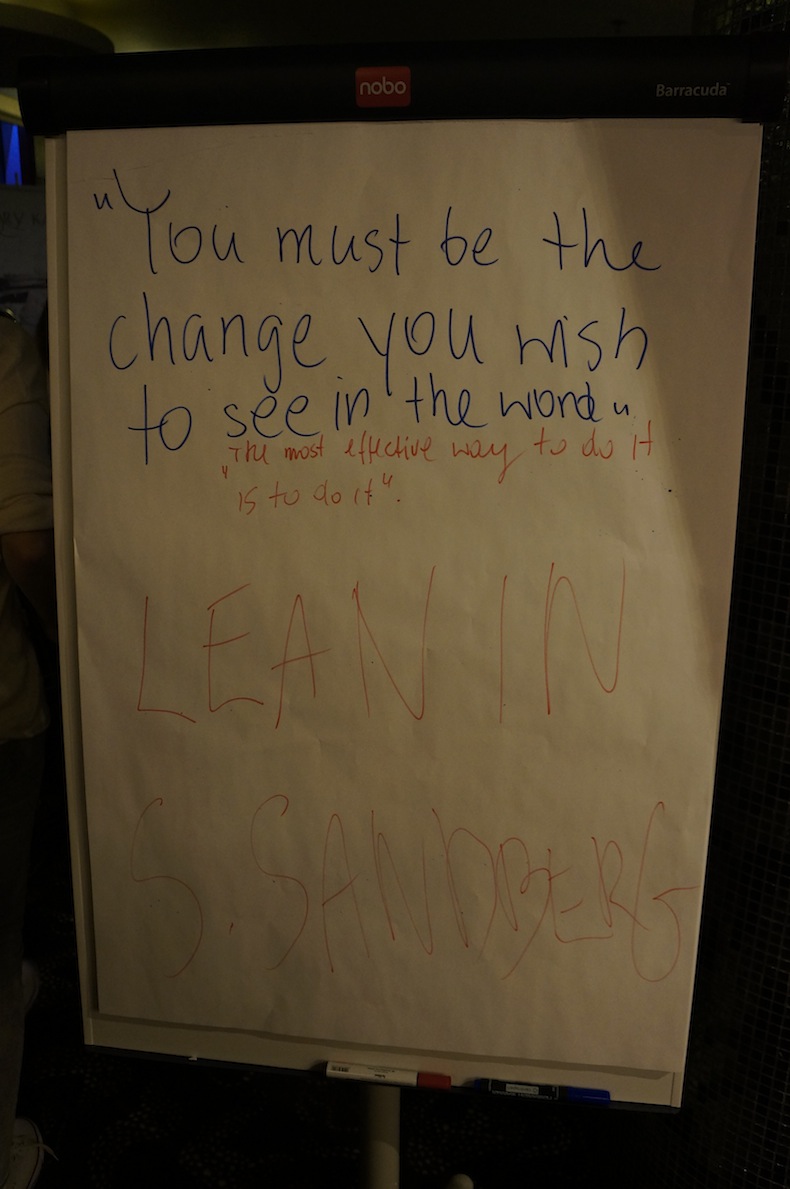 nobo
Barracuda
"You must be the
change you wish
to see in the word"
"The most effective way to do it
is to do it".
LEAN IN
S. SANDBERG